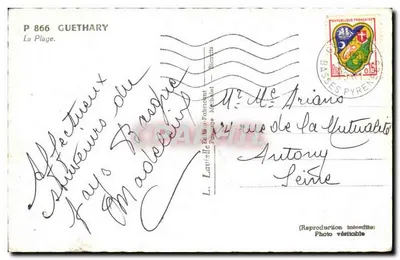 P 866 GUETHARY
La Plage.
Affectueux
souvenirs du
Pays Basque
Madeleine
REPUBLIQUE FRANÇAISE
BASSES PYRENEES
Mr Me Ariano
rue de la Mutualité
Antony
Seine
(Reproduction interdite)
Photo véritable